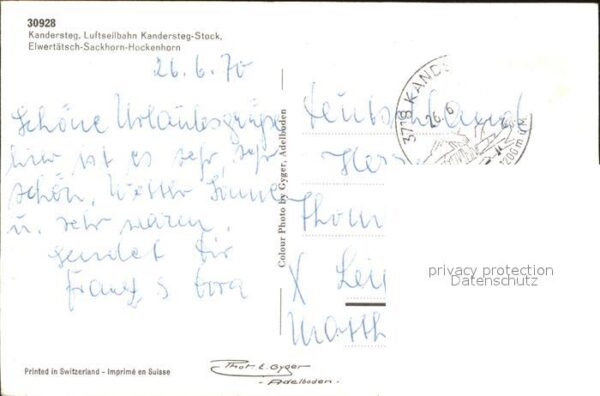 30928
Kandersteg, Luftseilbahn Kandersteg-Stock,
Elwertätsch-Sackhorn-Hockenhorn
26. 6. 70
Schöne Urlaubsgrüße
hier ist es sehr, sehr
schön, Wetter Sonne
u. sehr warm,
sendet Dir
Franz
Colour Photo by Gyger, Adelboden
3718 KANDE
26.6
1200 m ü.M.
Deutschland
Herr
Thom
X Lei
Matth
privacy protection
Datenschutz
Printed in Switzerland - Imprimé en Suisse
Phot. E. Gyger
- Adelboden -